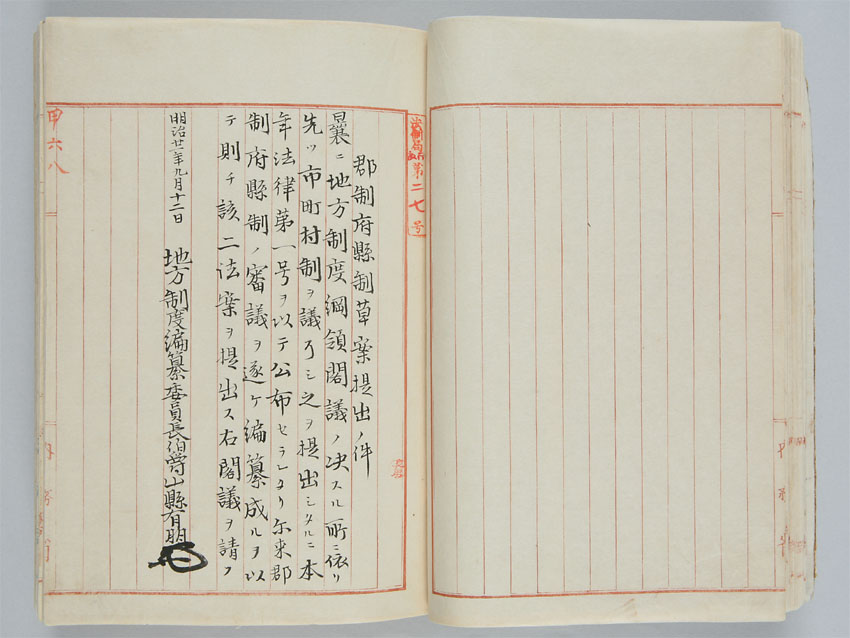 第二七号
郡制府縣制草案提出ノ件
曩ニ地方制度綱領閣議ノ决スル所ニ依リ
先ツ市町村制ヲ議了シ之ヲ提出シタルニ本
年法律第一号ヲ以テ公布セラレタリ尓来郡
制府縣制ノ審議ヲ遂ケ編纂成ルヲ以
テ則チ該二法案ヲ提出ス右閣議ヲ請フ
明治廿一年九月十二日
地方制度編纂委員長伯爵山縣有朋
甲六八